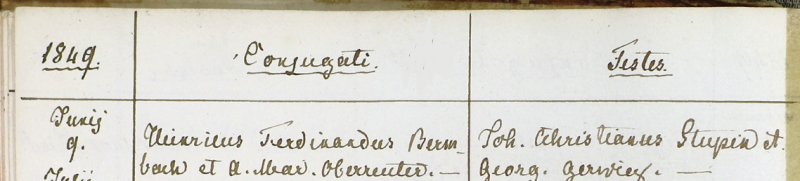 1849. Conjugati. Testes.
Junij
9.
Heinricus Ferdinandus Berm-
bach et A. Mar. Oberreuter. —
Joh. Christianus Stupin et
Georg. Gerwiey. —
Julij